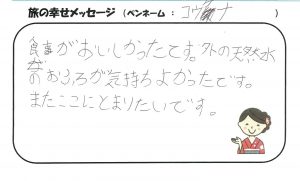 旅の幸せメッセージ（ペンネーム：コヴァーナ）
食事がおいしかったてす。外の天然水
のおふろが気持ちよかったです。
またここにとまりたいです。